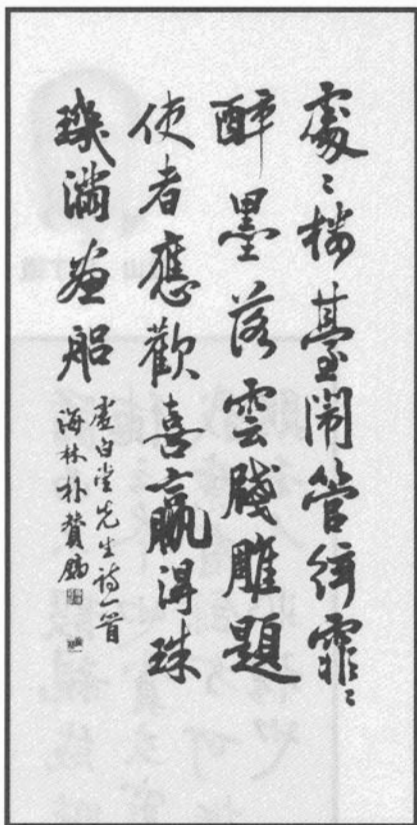 處〻樓臺閙管絃霏〻
醉墨落雲牋雕題
使者應歡喜贏得珠
璣滿畫舩
虛白堂先生詩一首
海林朴贊